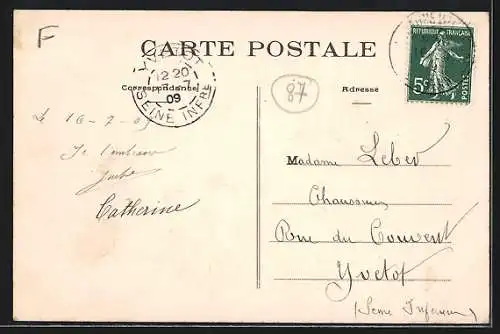 F
CARTE POSTALE
Correspondance
Adresse
YVETOT
12 20
7
09
SEINE INFRE
87
REPUBLIQUE FRANÇAISE
5c
POSTES
Le 16-7-09
Je
Catherine
Madame Leber
Rue du Couvent
Yvetot
(Seine Inférieure)